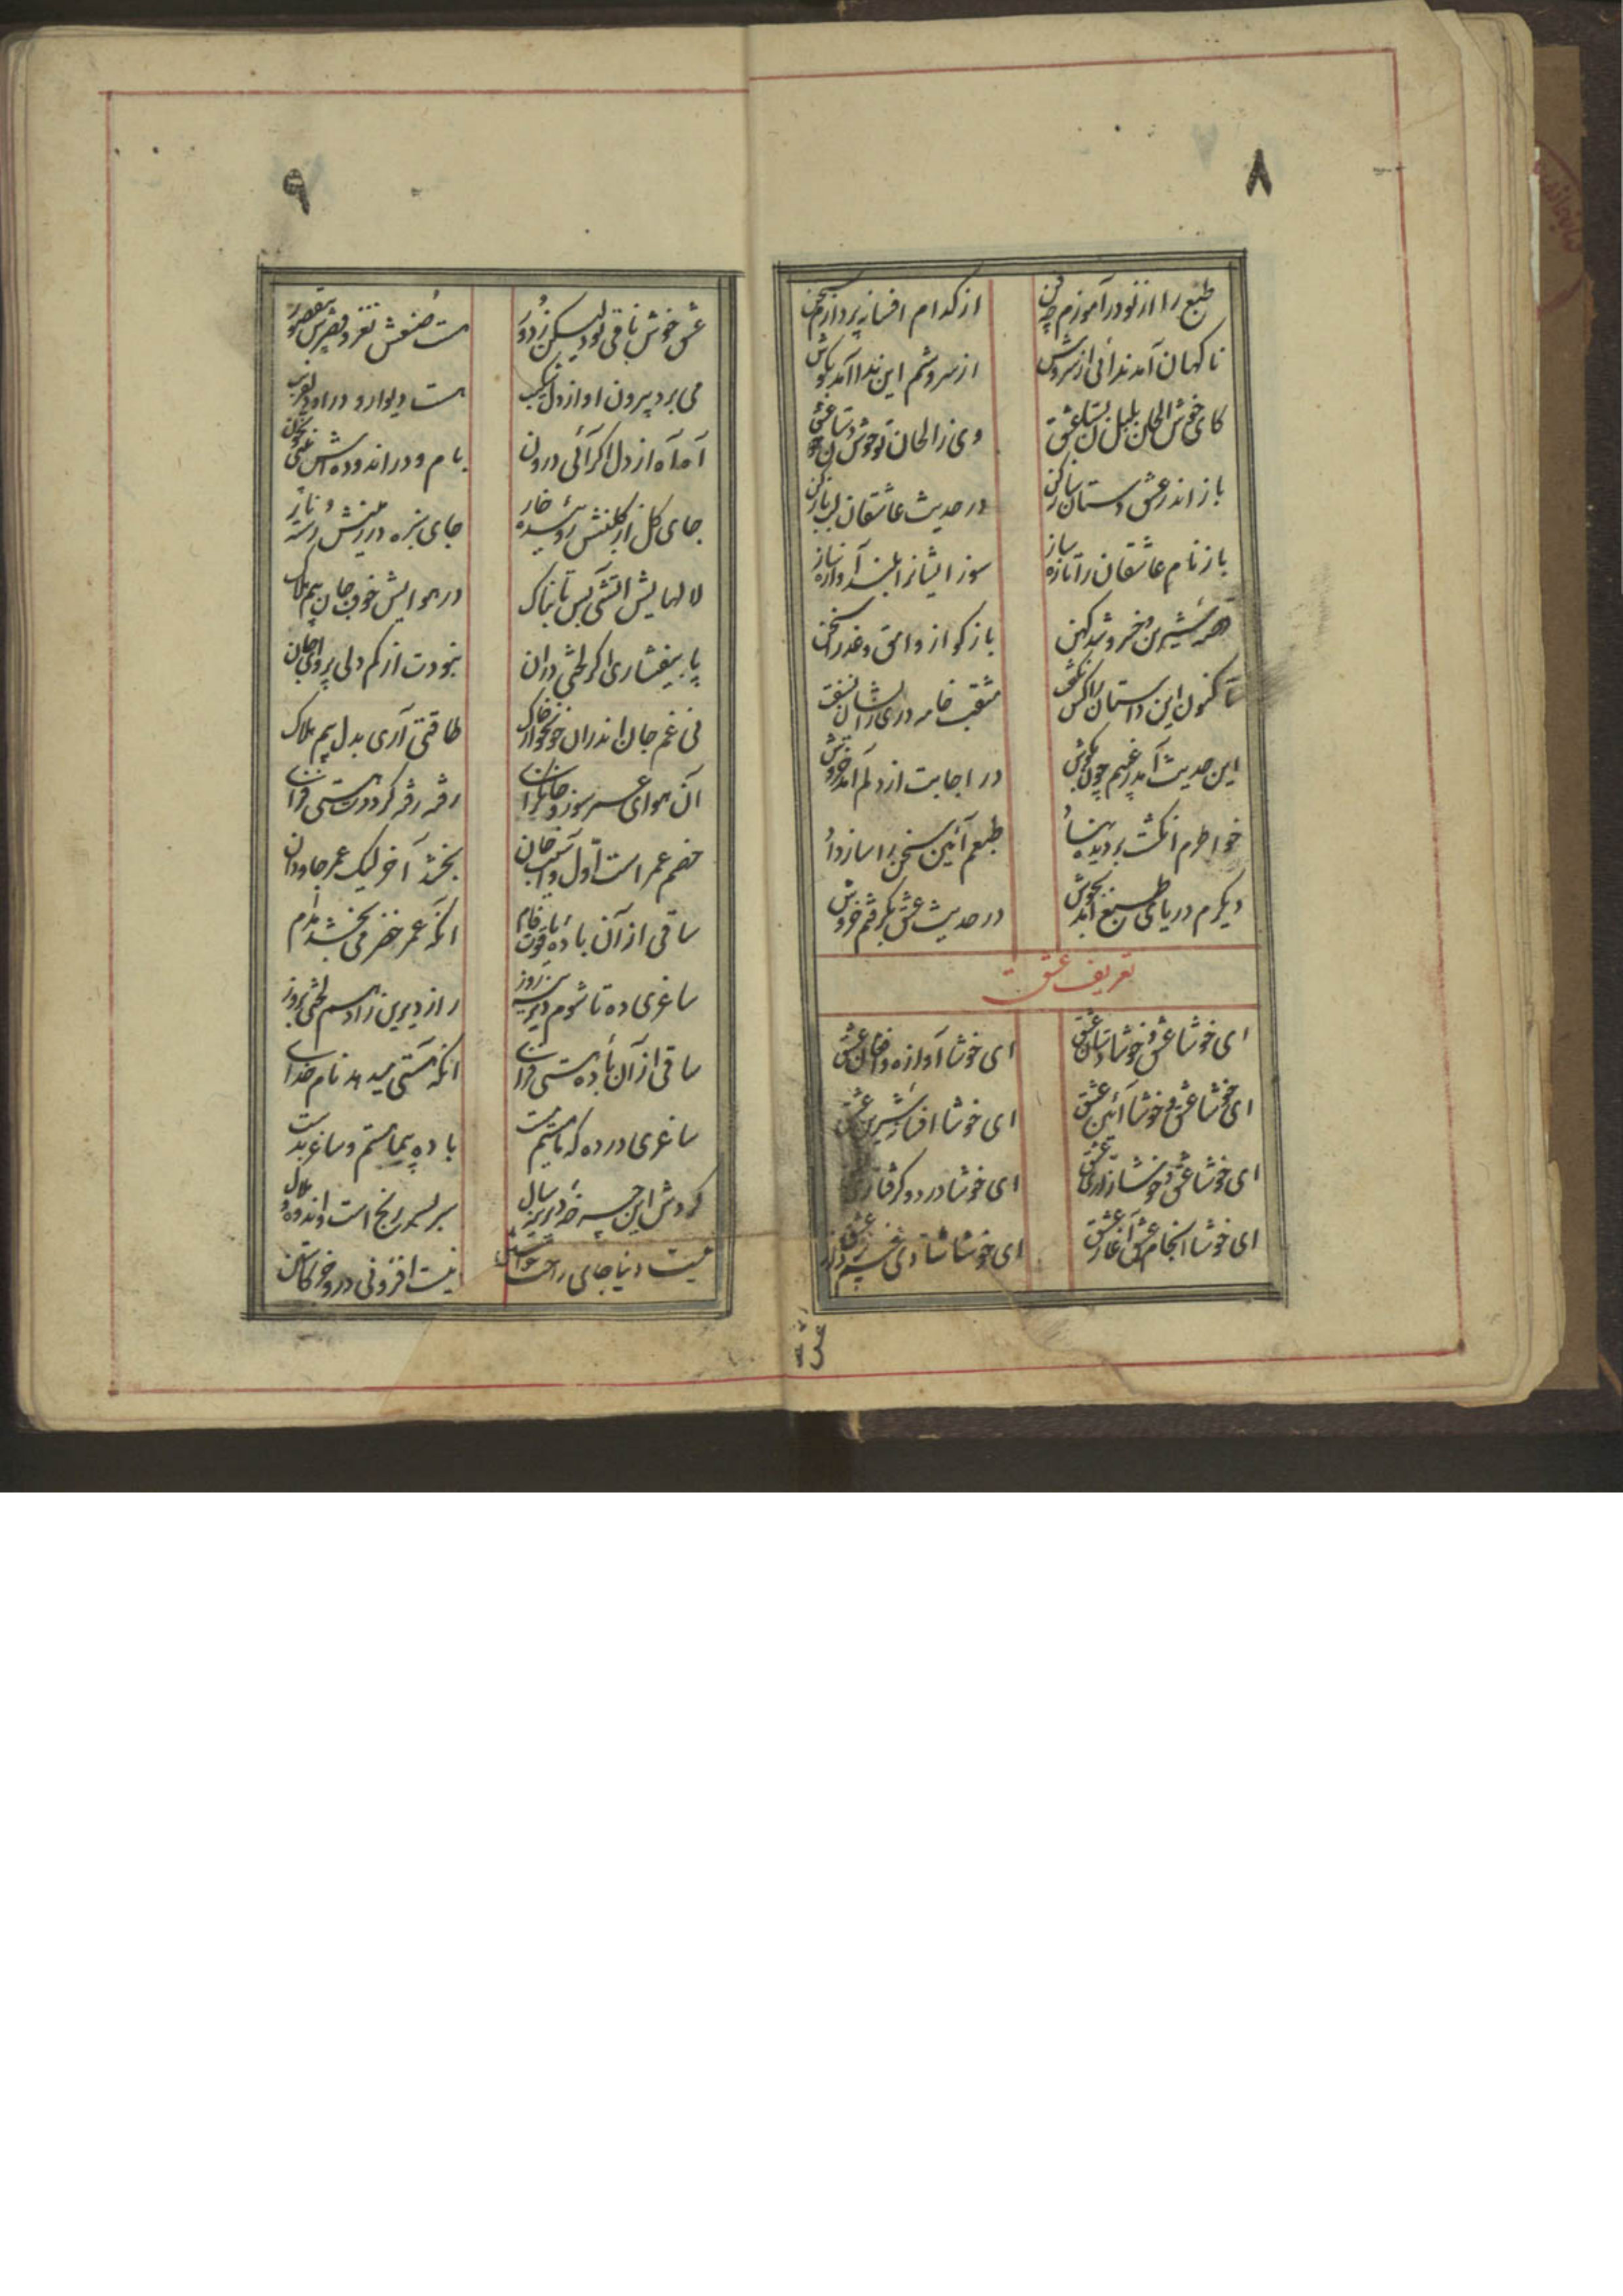 ۸
طبع را از نو در آموزم چه فن
از کدام افسانه پردازم سخن
ناکهان آمد ندائی از سروش
از سروشم این ندا آمد بکوش
کای خوش الحان بلبل بستان عشق
وی ز الحان تو خوش دستان عشق
باز اندر عشق دستان ساز کن
در حدیث عاشقان لب باز کن
باز نام عاشقان را تازه ساز
سوز ایشانرا بلند آوازه ساز
شیرین و خسرو شد کهن
باز کو از وامق و عذرا سخن
تا کنون این داستان را کس نگفت
مثقب خامه دری زانسان نسفت
این حدیث آمد ز غیبم چون بگوش
در اجابت از دلم آمد خروش
خواطرم انگشت بر دیده نهاد
طبعم آئین سخن را ساز داد
دیگرم دریای طبع آمد بجوش
در حدیث عشق بگرفتم خروش
تعریف عشق
ای خوشا عشق و خوشا دستان عشق
ای خوشا آوازه و افغان عشق
ای خوشا عشق و خوشا آئین عشق
ای خوشا افسانه شیرین عشق
ای خوشا عشق و خوشا زاری عشق
ای خوشا درد و گرفتاری
ای خوشا انجام عشق آغاز عشق
ای خوشا شادی غم پرداز عشق
۹
عشق خوش باقی بود لیکن ز دور
هست صنعش نغز و قصرش بیقصور
می برد بیرون او از دل شکیب
هست دیوار و در او دلفریب
آه آه از دل اگر آئی درون
بام و در اندوده اش بینی بخون
جای گل از گلبنش روئیده خار
جای سبزه در زمینش رسته نار
لالهایش آتشی بس تابناک
در هوایش خوف جان بیم هلاک
پا بیفشاری اگر لختی در آن
نبودت از کم دلی پروای جان
نی غم جان اندران خونخوار خاک
طاقتی آری بدل بیم هلاک
آن هوای عمر سوز و جانگزا
رفته رفته گرددت هستی فزا
خصم عمر است اول و آسیب جان
بخشد آخر لیک عمر جاودان
ساقی از آن باده یاقوت فام
آنکه عمر خضر می بخشد مدام
ساغری ده تا شوم دیرینه روز
راز دیرین زاد سم لختی بروز
ساقی از آن باده هستی فزا
آنکه هستی میدهد نام خدا
ساغری در ده که تا هستیم هست
باده پیما هستم و ساغر بدست
گردش این چرخه دیرینه سال
سر بسر رنج است و اندوه و ملال
نیست دنیا جای راحت خواستن
نیست افزونی درو جز کاستن